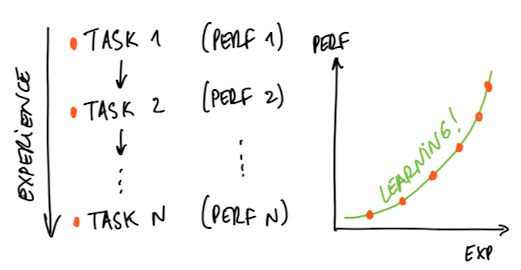 EXPERIENCE
TASK 1 (PERF 1)
TASK 2 (PERF 2)
TASK N (PERF N)
PERF
LEARNING!
EXP